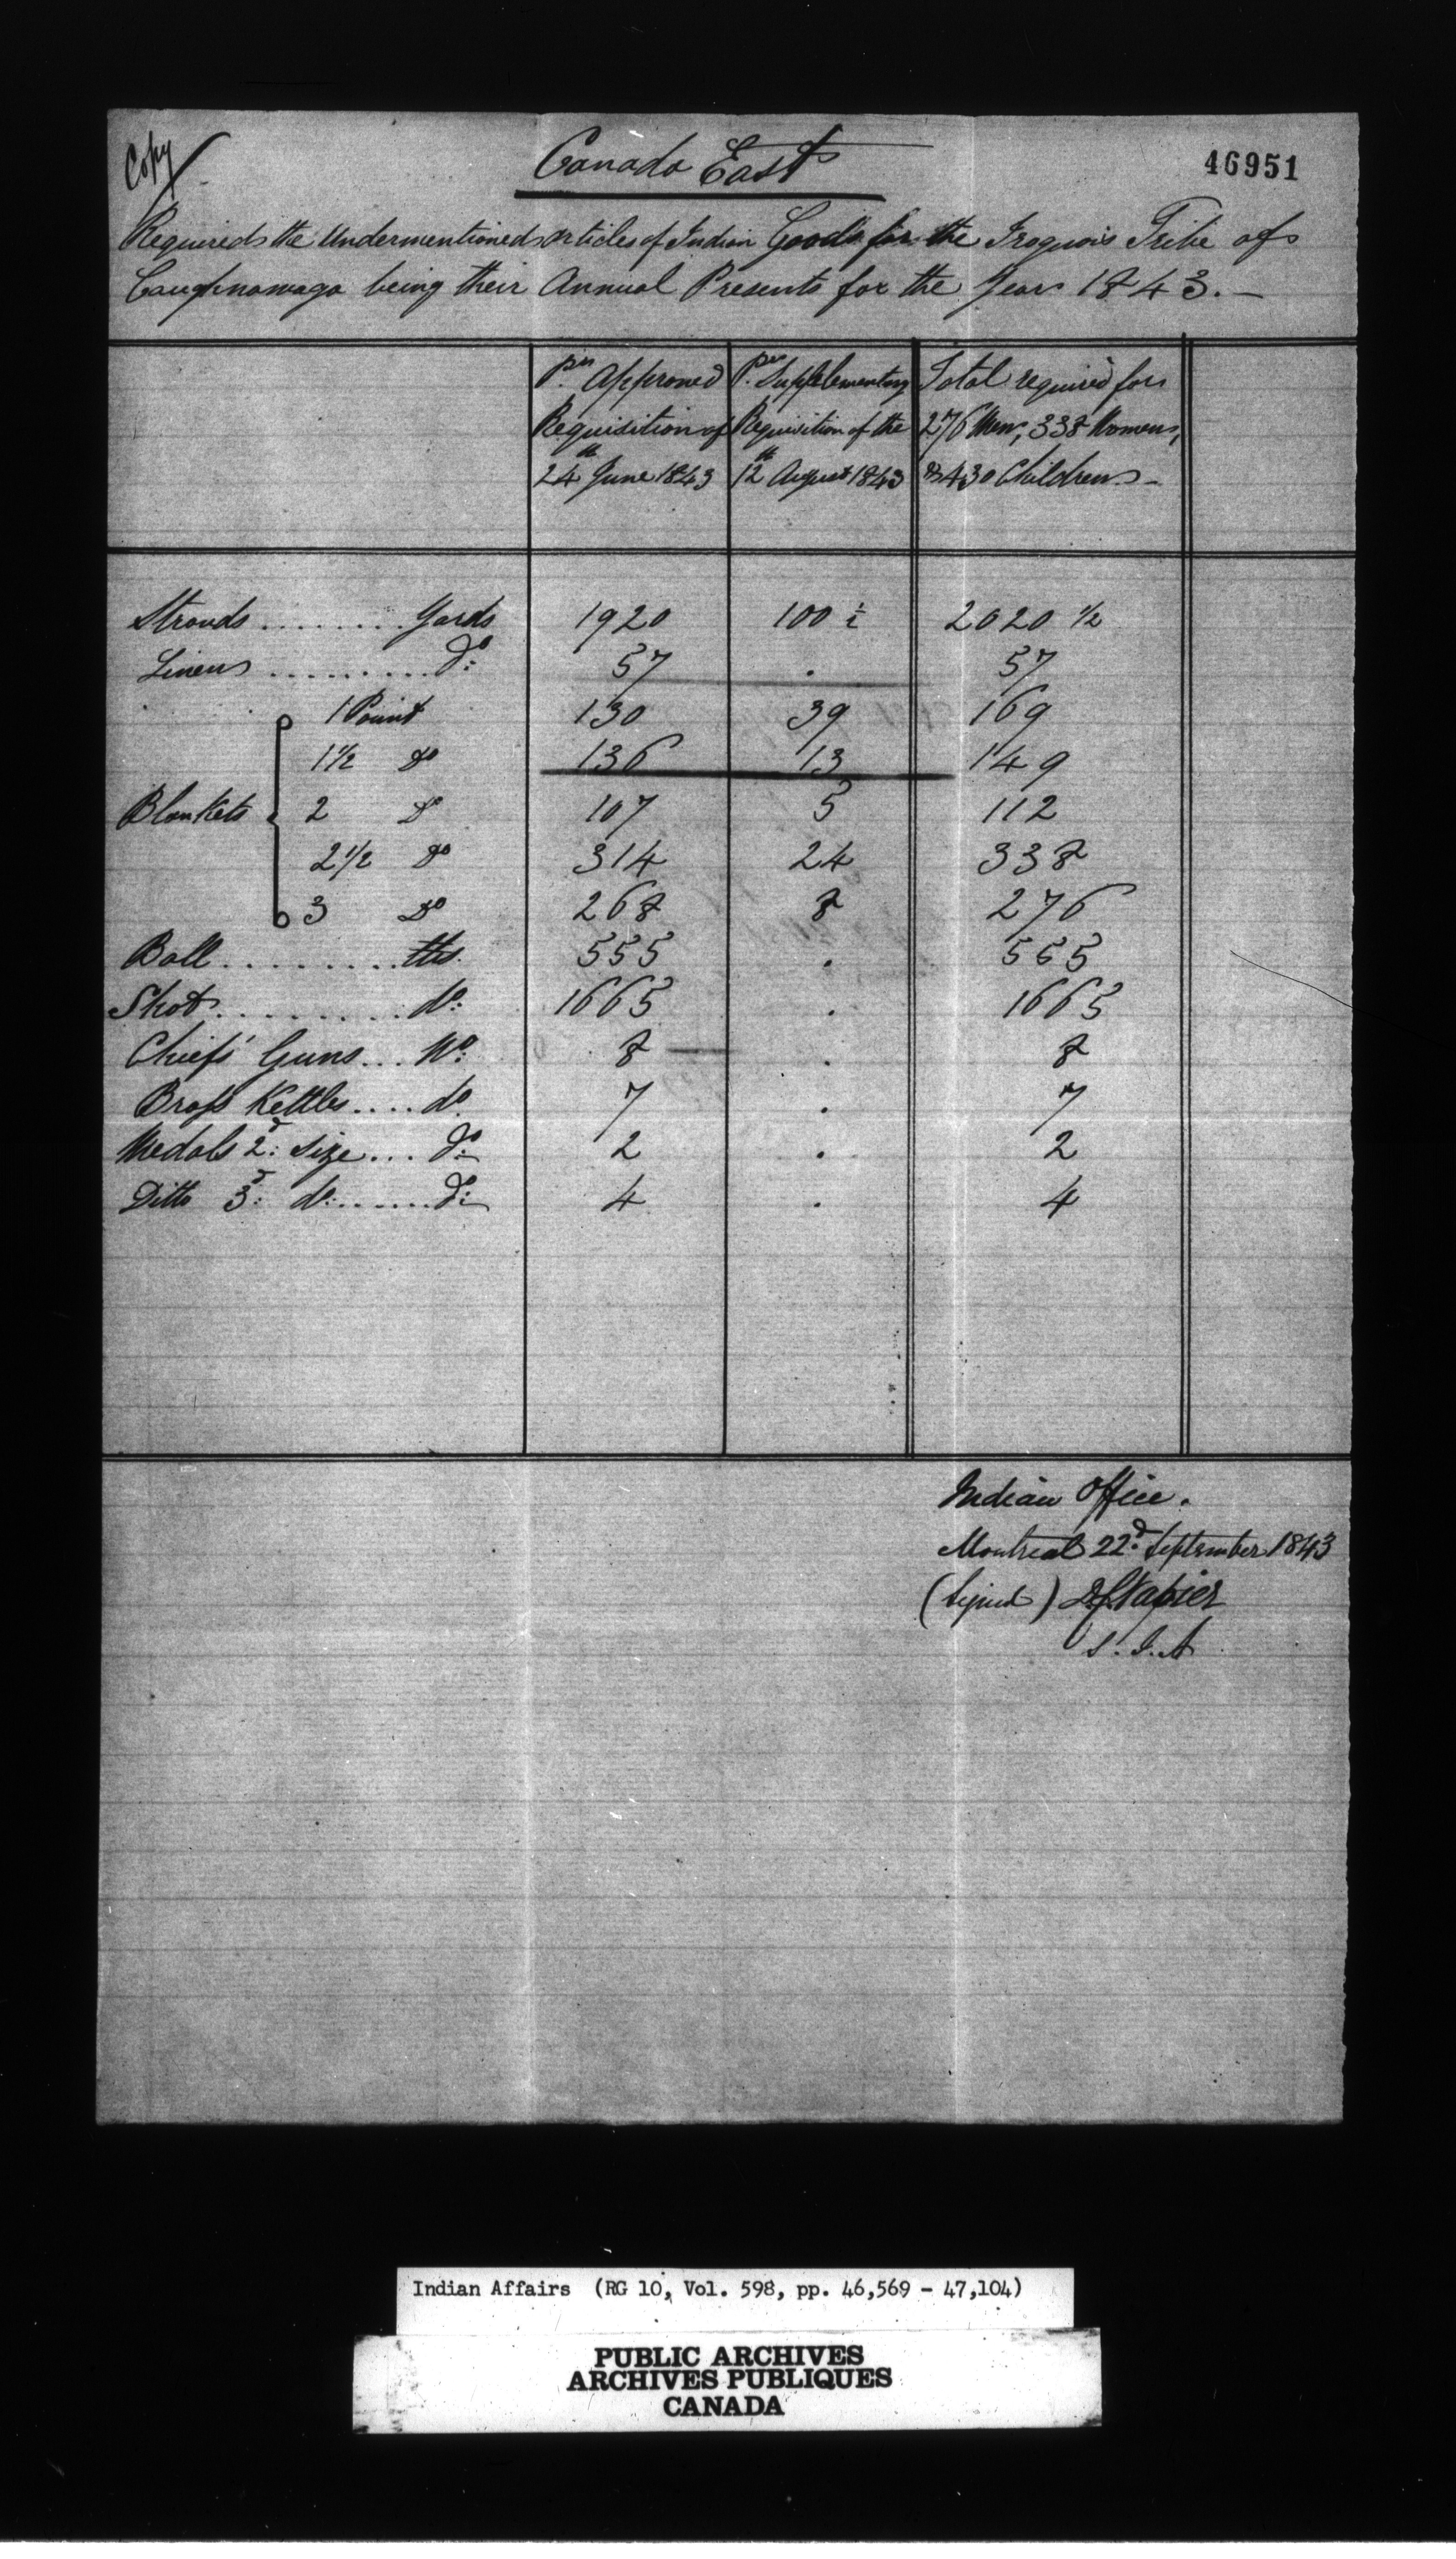 Copy
Canada East
46951
Required the Undermentioned articles of Indian Goods for the Iroquois Tribe of
Caughnawaga being their Annual Presents for the Year 1843.—
Pr. Approved Requisition of 24th June 1843
Pr. Supplementary Requisition of the 12th August 1843
Total required for 276 Men, 338 Women, & 430 Children.—
Strouds ........ Yards 1920 100 ½ 2020 ½
Linen ......... Do: 57 . 57
1 Point 130 39 169
1½ Do 136 13 149
Blankets 2 Do 107 5 112
2½ Do 314 24 338
3 Do 268 8 276
Ball ......... lbs. 555 . 555
Shot ......... do: 1665 . 1665
Chiefs' Guns ... No: 8 . 8
Brass Kettles .... do. 7 . 7
Medals 2d: size ... Do: 2 . 2
Ditto 3d: do: ...... Do: 4 . 4
Indian Office.
Montreal 22d. September 1843
(Signed) D C Napier
S. I. A
Indian Affairs (RG 10, Vol. 598, pp. 46,569 - 47,104)
PUBLIC ARCHIVES
ARCHIVES PUBLIQUES
CANADA